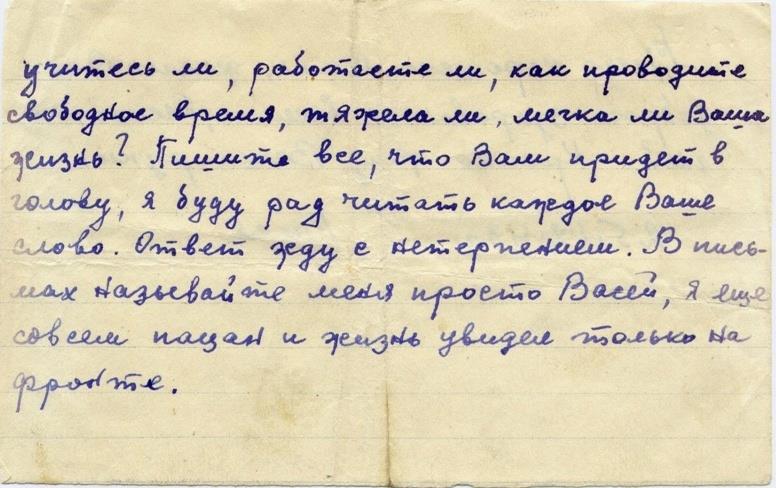 учитесь ли, работаете ли, как проводите
свободное время, тяжела ли, легка ли Ваша
жизнь? Пишите все, что Вам придет в
голову, я буду рад читать каждое Ваше
слово. Ответ жду с нетерпением. В пись-
мах называйте меня просто Васей, я еще
совсем пацан и жизнь увидел только на
фронте.